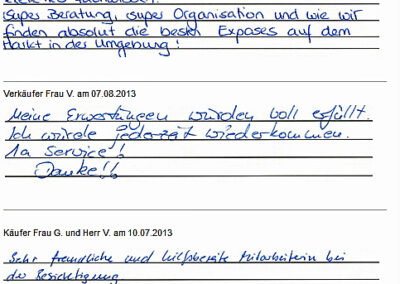 super Beratung, super Organisation und wie wir
finden absolut die besten Exposes auf dem
Markt in der Umgebung!
Verkäufer Frau V. am 07.08.2013
Meine Erwartungen wurden voll erfüllt.
Ich würde jederzeit wiederkommen.
1a Service!!
Danke!!
Käufer Frau G. und Herr V. am 10.07.2013
Sehr freundliche und hilfsbereite Mitarbeiterin bei
der Besichtigung